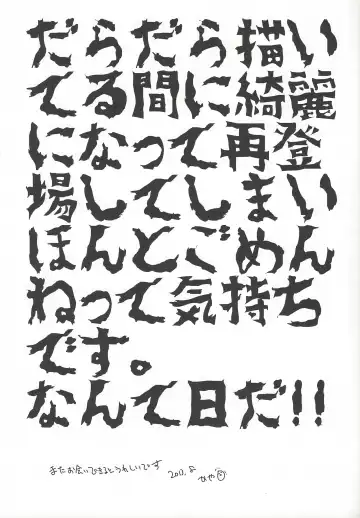 だらだら描い
てる間に綺麗
になって再登
場してしまい
ほんとごめん
ねって気持ち
です。
なんて日だ!!
またお会いできるとうれしいです